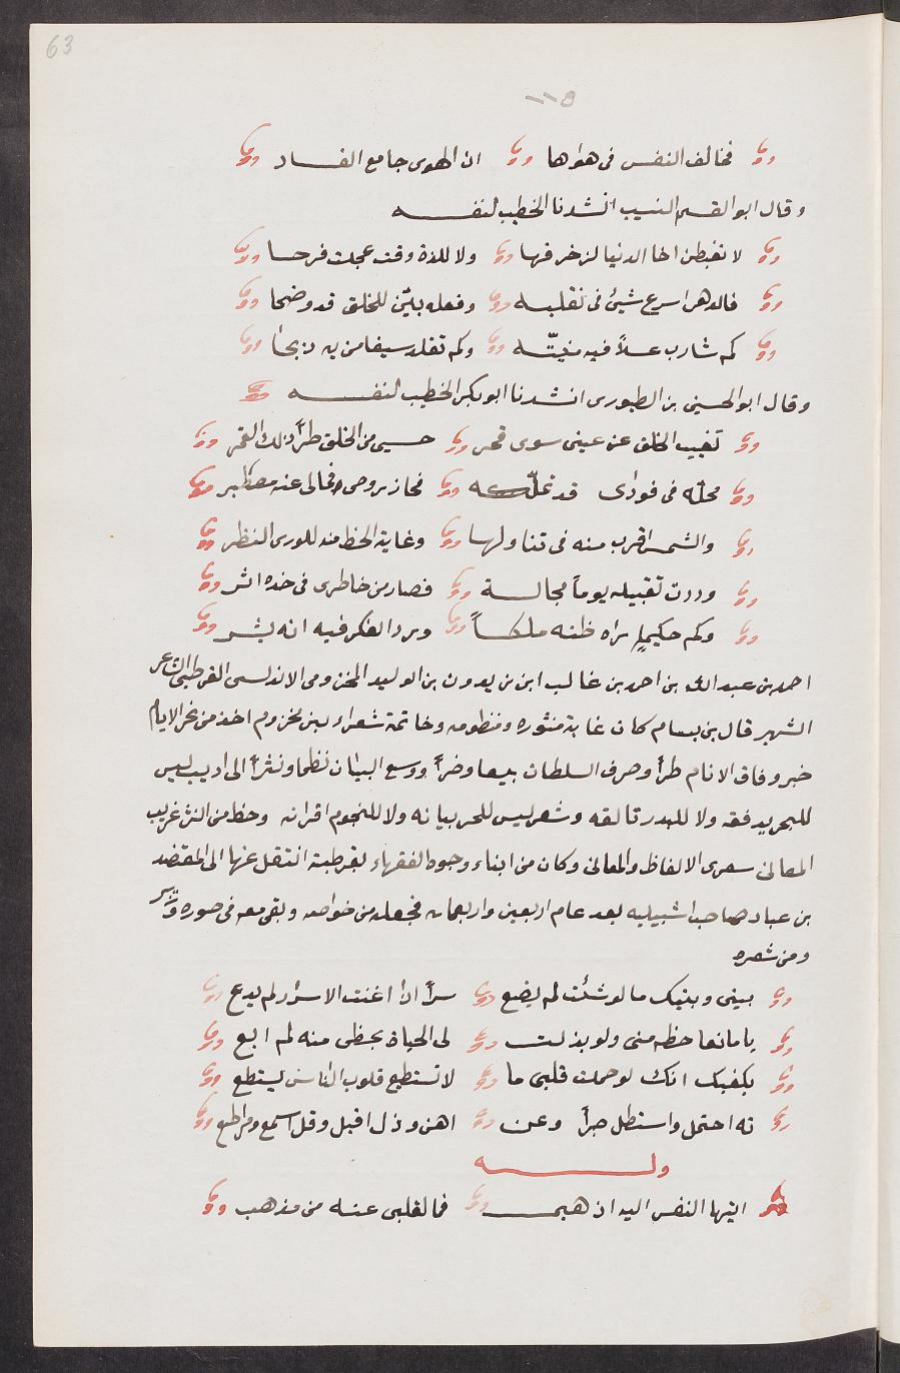 63
١١٥
فخالف النفس فى هواها ان الهوى جامع الفساد
وقال ابو القسم النسيب انشدنا الخطيب لنفسه
لا تغبطن اخا الدنيا لزخرفها ولا للذة وقت عجلت فرحا
فالدهر اسرع شيئ فى تقلبه وفعله بيّن للخلق قد وضحا
كم شارب عسلاً فيه منيتّه وكم تقلد سيفا من به ذبحا
وقال ابو الحسين بن الطيورى انشدنا ابو بكر الخطيب لنفسه
تغيب الخلق عن عينى سوى قمر حسبى من الخلق طرأ ذلك القمر
محلّه فى فوادى قد تملّكه فحاز روحى فمالى عنه مصطبر
والشمس اقرب منه فى تناولها وغاية الحظ منه للورى النظر
وددت تقبيله يوماً مجالسة فصار من خاطرى فى خده اثر
وكم حكيمٍ راه ظنه ملكاً وردد الفكر فيه انه بشر
احمد بن عبد الله بن احمد بن غالب ابن زيدون بن الوليد المخزومى الاندلسى القرطبى الشاعر
الشهير قال بن بسام كان غاية منثوره ومنظومه وخاتمة شعراء بنى مخزوم اخذ من حر الايام
خبر وفاق الانام طراً وصرف السلطان نفعا وضراً ووسع البيان نظما ونثراً الى اديب ليس
للبحر يدفقه ولا للبدر تالقه وشعر ليس للسحر بيانه ولا للنجوم اقرانه وحظ من النثر غريب
المعانى شعرى الالفاظ والمعانى وكان من ابناء وجوه الفقهاء بقرطبة انتقل عنها الى المعتضد
بن عباد صاحب اشبيليه بعد عام اربعين واربعمايه فجعله من خواصه وبقى معه فى صورة وزير
ومن شعره
بينى وبينك ما لو شئت لم يضع سراً اذا اغنت الاسرار لم يدع
يا بائعا حظه منى ولو بذلت لى الحياة بحظى منه لم ابع
يكفيك انك لو حملت قلبى ما لا تستطيع قلوب الناس يستطع
ته احتمل واستطل صبراً وعن اهن وذل اقبل وقل اسمع ومر اطع
وله
ايتها النفس اليه اذهبى فما لقلبى عنه من مذهب